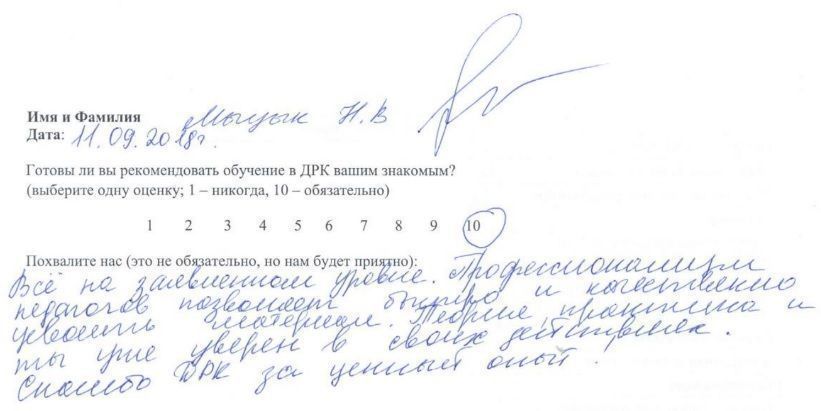 Имя и Фамилия Мыцык Н.В
Дата: 11.09.2018г.
Готовы ли вы рекомендовать обучение в ДРК вашим знакомым?
(выберите одну оценку; 1 – никогда, 10 – обязательно)
1 2 3 4 5 6 7 8 9 10
Похвалите нас (это не обязательно, но нам будет приятно):
Всё на заявленном уровне. Профессионализм
педагогов позволяет быстро и качественно
усвоить материал. Теория, практика и
ты уже уверен в своих действиях.
Спасибо ДРК за ценный опыт.